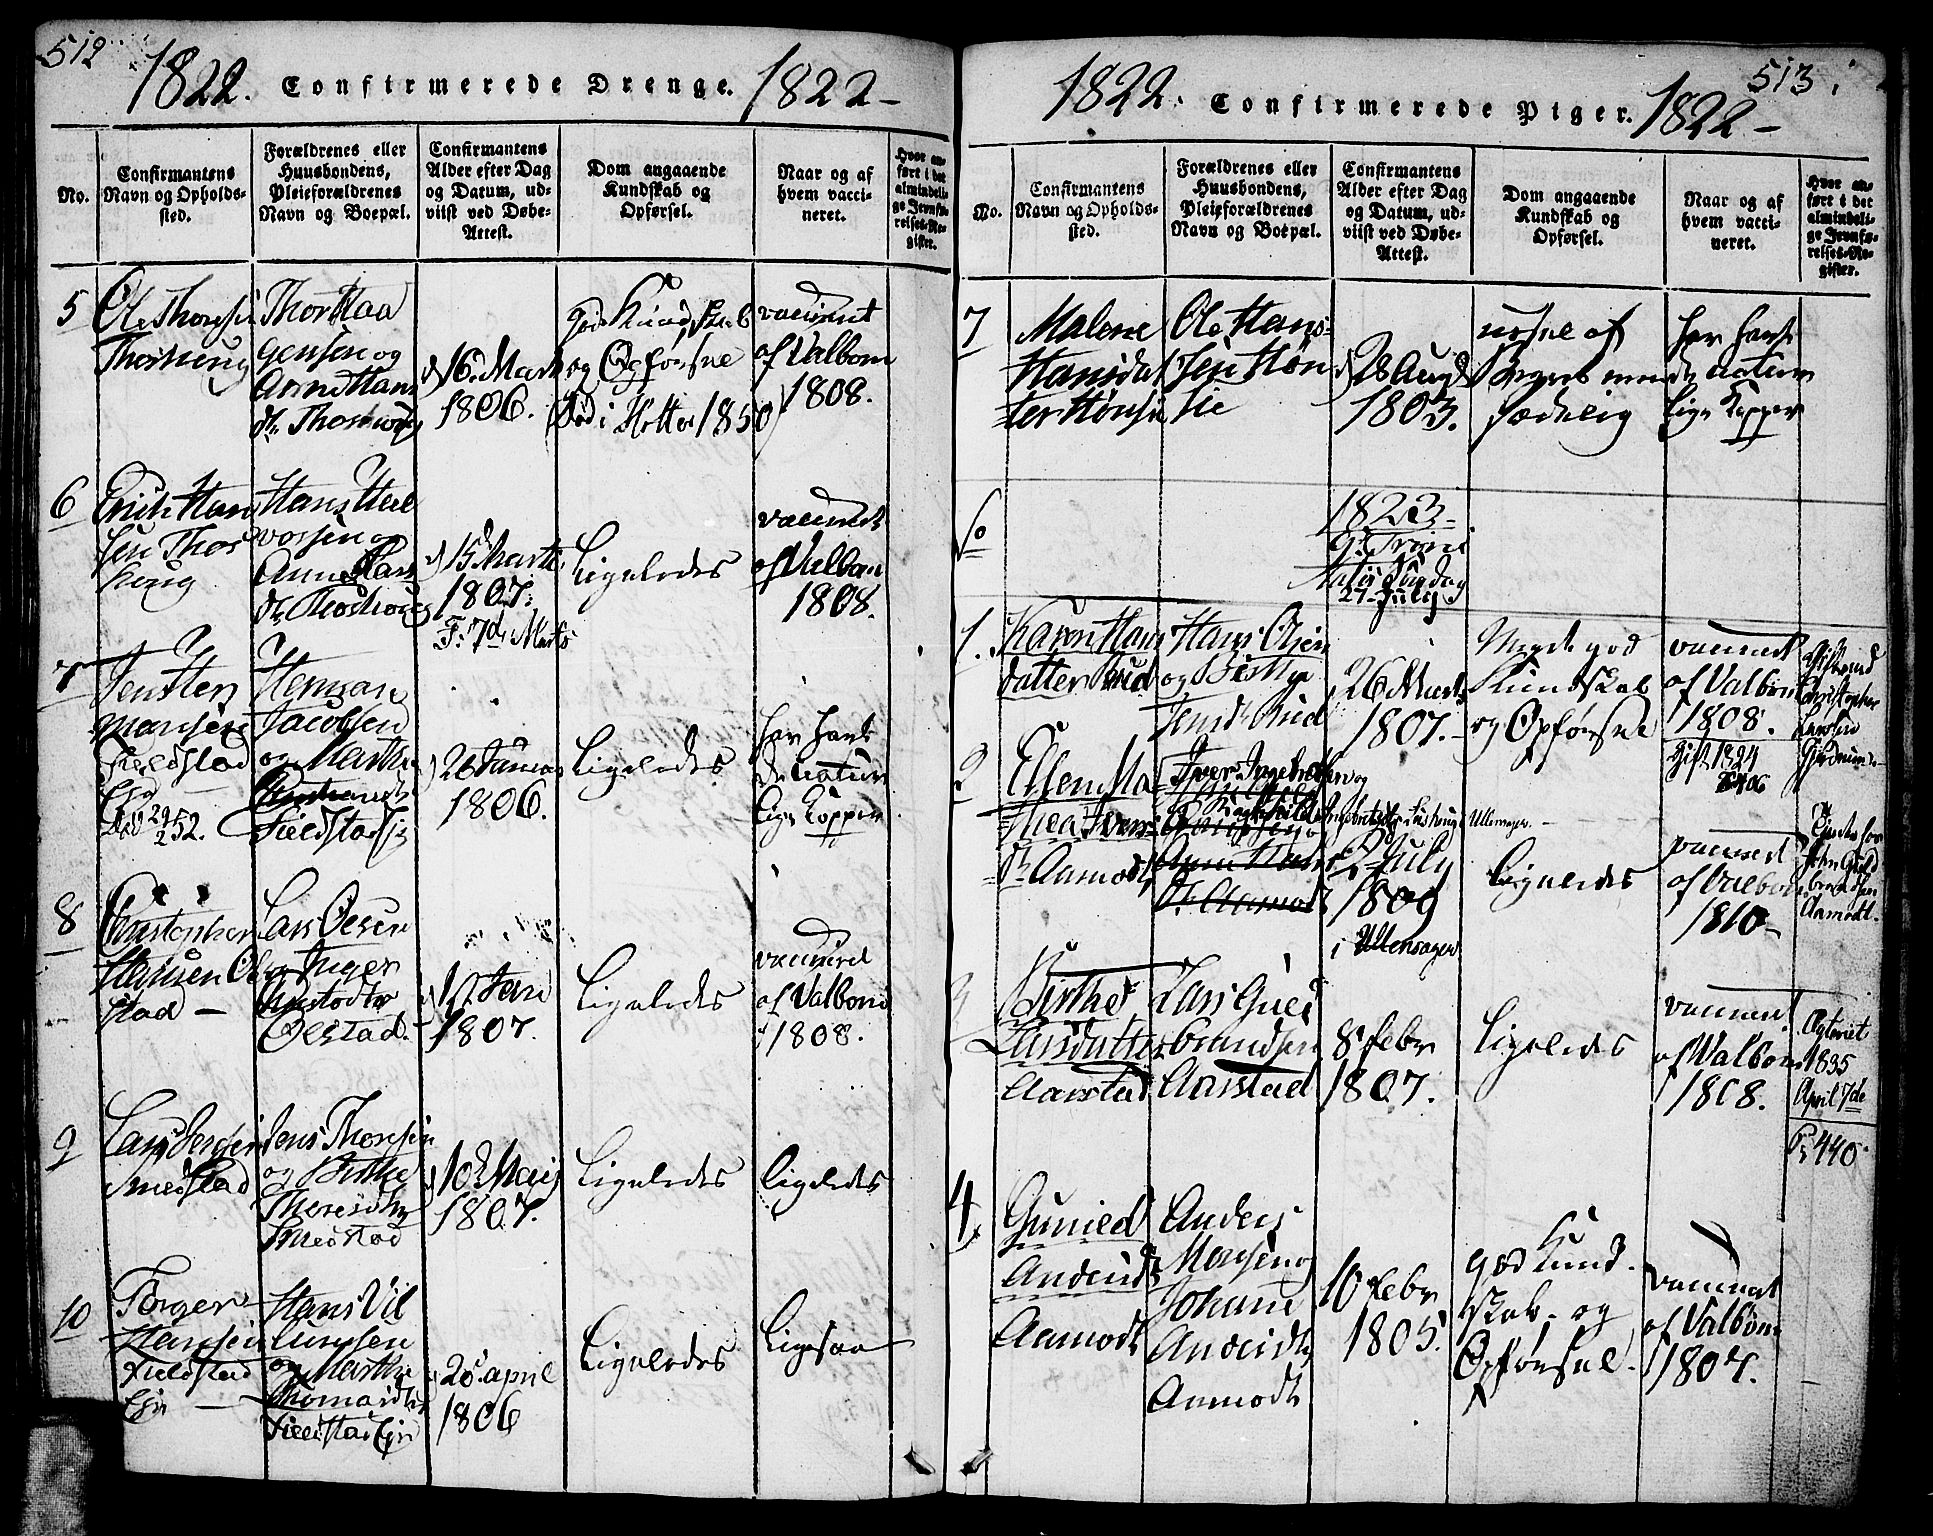 512
1822. Confirmerede Drenge. 1822-
No.
Confirmantens
Navn og Opholds-
sted.
Forældrenes eller
Huusbondens,
Pleieforældrenes
Navn og Boepæl.
Confirmantens
Alder efter Dag
og Datum, ud-
viist ved Døbe-
Attest.
Dom angaaende
Kundskab og
Opførsel.
Naar og af
hvem vacci-
neret.
Hvor an-
ført i det
almindeli-
ge Jevnfø-
relses-Re-
gister.
5
Ole Thorsen
Thor Haa
gensen og
Anne Hans
16 Marti
1806.
god Kundskab
og Opførsel
Død i Hotter 1850
vaccineret
af Valbom
1808.
6
Erich Han
sen Thos
haug
Hans Hal
vorsen og
Anne Lars
15 Marti
1807.
F: 7de Marts
Ligeledes
vaccineret
af Valbom
1808.
7
Jens Her
mansen
Fieldstad
Eje
Død 29/2 52.
Herman
Jacobsen
og Marthe
Fieldstadeje
26 Januar
1806.
Ligeledes
har havt
de natur
lige Kopper
8
Christopher
Larsen Ol
stad -
Lars Olsen
og Inger
Christodtr
Oelstad.
17 Jan
1807.
Ligeledes
vaccineret
af Valbom
1808.
9
Lars Jensen
Smedstad
Jens Thoresen
og Birthe
Smedstad
10 Maij
1807.
Ligeledes
ligeledes
10
Torger
Hansen
Fieldstad
Eje -
Hans Vil
lumsen
og Marthe
Thomasdtr
Fieldstad Eje
20 april
1806
Ligeledes
Ligesaa
513
1822. Confirmerede Piger. 1822-
No.
Confirmantens
Navn og Opholds-
sted.
Forældrenes eller
Huusbondens,
Pleieforældrenes
Navn og Boepæl.
Confirmantens
Alder efter Dag
og Datum, ud-
viist ved Døbe-
Attest.
Dom angaaende
Kundskab og
Opførsel.
Naar og af
hvem vacci-
neret.
Hvor an-
ført i det
almindeli-
ge Jevnfø-
relses-Re-
gister.
7
Malene
Hansdat
ter Hønsie
Ole Hans
sen Høn
sie
28 Augs
1803.
sædelig
har havt
de natur
lige Kopper
1823-
9de Trini
tatis Søndag
27 July
1.
Karen Hans
datter Rud
Hans Olsen
og Birthe
Jensdr Rud
26 Marts
1807.
Meget god
Kundskab
og Opførsel
vaccineret
af Valbom
1808.
Gift 1824
Gift med
Christopher
Larsen
Gjerdrum
2
Ellen Ma
thea Ivers
dr Aamodt
Iver Ingebretsen og
Ragnhild Ingebretsdtr
Anne Hans
dr Aamodt
2 July
1809
i Ullensager
Ligeledes
vaccineret
af Valbom
1810-
Tjente for
John Guld
brandsen
Aamodt.
3
Birthe
Larsdatter
Aarstad
Lars Guld
brandsen
Aarstad
8 febr
1807.
Ligeledes
vaccineret
af Valbom
1808.
1835
April 7de
440
4
Gunild
Andersdr
Aamodt
Anders
Monsen og
Johanne
Andersdtr
Aamodt
10 febr
1805.
god Kund-
skab og
Opførsel.
vaccineret
af Valbom
1807.